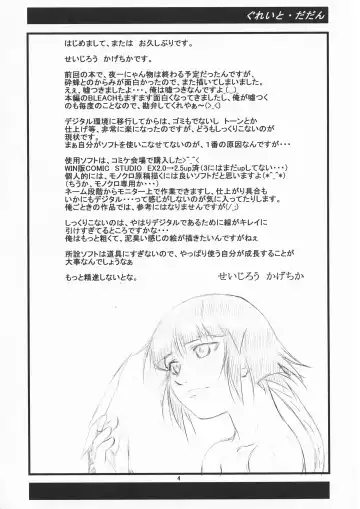 ぐれいと・だだん
はじめまして、または お久しぶりです。
せいじろう かげちかです。
前回の本で、夜一にゃん物は終わる予定だったんですが、
砕蜂とのからみが面白かったので、また描いてしまいました。
えぇ、嘘つきましたよ・・・、俺は嘘つきなんですよ(_ _;)
本編のBLEACHもますます面白くなってきましたし、俺が嘘つく
のも毎度のことなので、勘弁してくれやぁ～(>_<)
デジタル環境に移行してからは、ゴミもでないし トーンとか
仕上げ等、非常に楽になったのですが、どうもしっくりこないのが
現状です。
まぁ自分がソフトを使いこなせてないのが、1番の原因なんですが・・・
使用ソフトは、コミケ会場で購入した>^_^<
WIN版COMIC STUDIO EX2.0→2.5up済(3にはまだupしてない・・・)
個人的には、モノクロ原稿描くには良いソフトだと思いますよ(*^_^*)
(ちうか、モノクロ専用か・・・)
ネーム段階からモニター上で作業できますし、仕上がり具合も
いかにもデジタル・・・って感じがしないのが気に入ってたりします。
俺ごときの作品では、参考にはなりませんですが(/_;)
しっくりこないのは、やはりデジタルであるために線がキレイに
引けすぎてるところですかな・・・
俺はもっと粗くて、泥臭い感じの絵が描きたいんですがねぇ
所詮ソフトは道具にすぎないので、やっぱり使う自分が成長することが
大事なんでしょうなぁ
もっと精進しないとな。
せいじろう かげちか
4